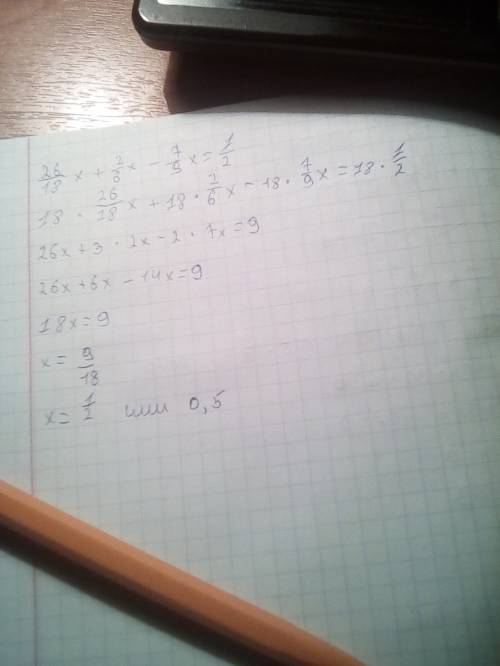 26/18 x + 2/6 x - 7/9 x = 1/2
18 · 26/18 x + 18 · 2/6 x - 18 · 7/9 x = 18 · 1/2
26x + 3 · 2x - 2 · 7x = 9
26x + 6x - 14x = 9
18x = 9
x = 9/18
x = 1/2 или 0,5